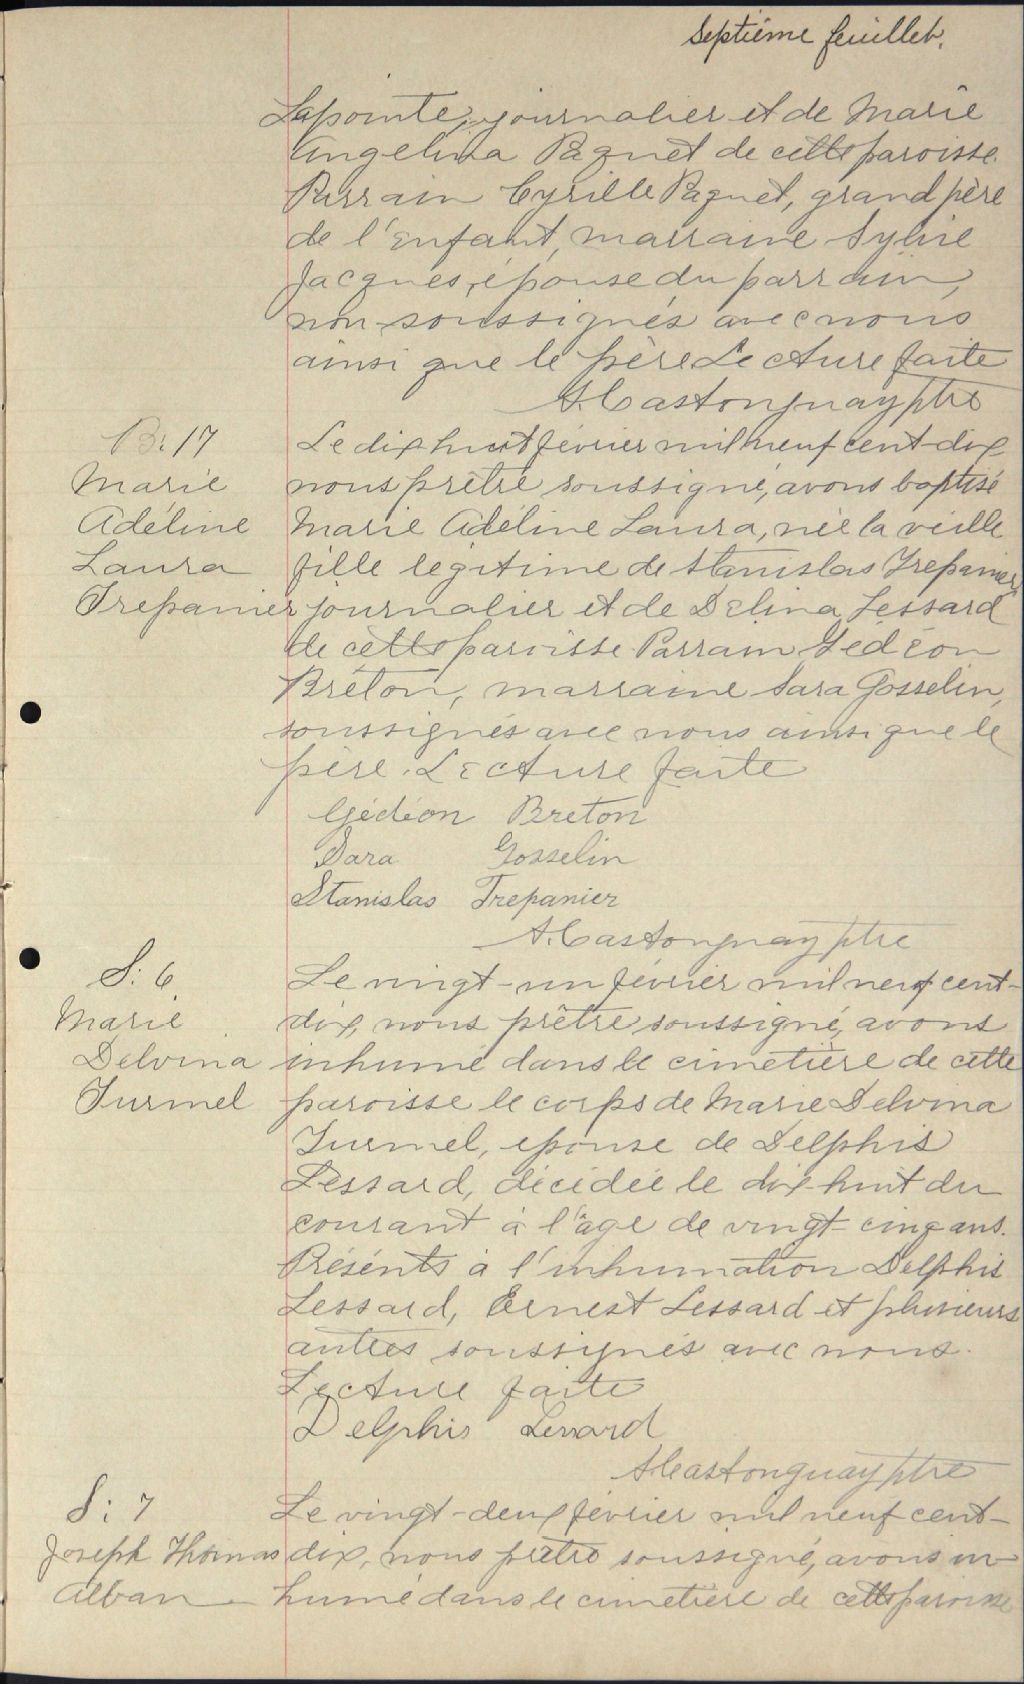 Septième feuillet.
Lapointe, journalier et de Marie
Angelina Paquet de cette paroisse.
Parrain Cyrille Paquet, grand père
de l'Enfant, marraine Sylvie
Jacques, épouse du parrain,
non soussignés avec nous
ainsi que le père Lecture faite
A. Castonguay ptre
B: 17
Marie
Adéline
Laura
Trepanier
Le dix huit février mil neuf cent-dix
nous prêtre soussigné, avons baptisé
Marie Adéline Laura, née la veille
fille légitime de Stanislas Trepanier,
journalier et de Délina Lessard
de cette paroisse Parrain Gédéon
Bréton, marraine Sara Gosselin,
soussignés avec nous ainsi que le
père. Lecture faite
Gédéon Breton
Sara Gosselin
Stanislas Trepanier
A. Castonguay ptre
S: 6
Marie
Delvina
Turmel
Le vingt-un février mil neuf cent-
dix, nous prêtre soussigné, avons
inhumé dans le cimetière de cette
paroisse le corps de Marie Delvina
Turmel, épouse de Delphis
Lessard, décédée le dix-huit du
courant à l'âge de vingt-cinq ans.
Présents à l'inhumation Delphis
Lessard, Ernest Lessard et plusieurs
autres soussignés avec nous.
Lecture faite
Delphis Lessard
A. Castonguay ptre
S: 7
Joseph Thomas
Alban
Le vingt-deux février mil neuf cent-
dix, nous prêtre soussigné, avons in-
humé dans le cimetière de cette paroisse